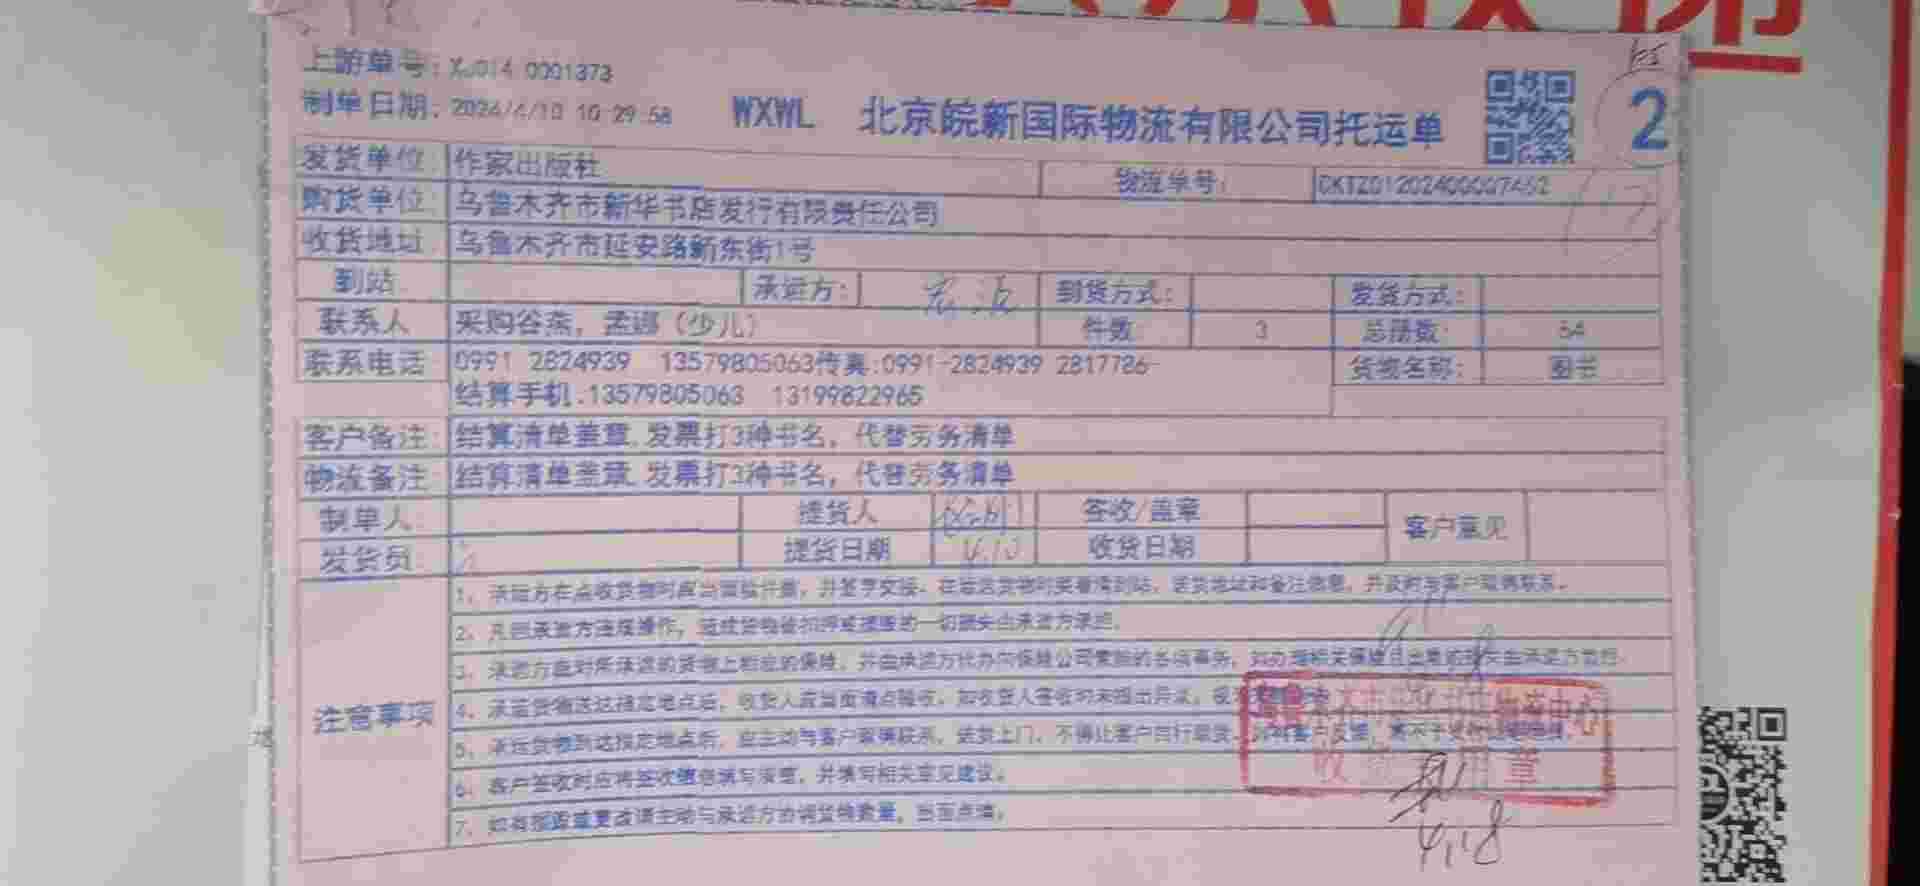 上游单号: XJ014 0001373
制单日期: 2024/4/10 10:29:58
WXWL 北京皖新国际物流有限公司托运单
2
发货单位 作家出版社 物流单号:
购货单位 乌鲁木齐市新华书店发行有限责任公司
收货地址 乌鲁木齐市延安路新东街1号
到站 承运方: 到货方式: 发货方式:
联系人 采购谷燕, 孟娜 (少儿) 件数 3 总册数: 64
联系电话 0991 2824939 13579805063传真:0991-2824939 2817786- 货物名称: 图书
结算手机:13579805063 13199822965
客户备注: 结算清单盖章,发票打3种书名, 代替劳务清单
物流备注: 结算清单盖章,发票打3种书名, 代替劳务清单
制单人 提货人 签收/盖章 客户意见
发货员 提货日期 4.10 收货日期
注意事项
1、承运方在点收货物时应当面验件数, 并签字交接. 在运送货物时要看清到站, 送货地址和备注信息, 并及时与客户取得联系.
2、凡因承运方违规操作, 造成货物被扣押或损毁的一切损失由承运方承担.
3、承运方应对所承运的货物上相应的保险, 并由承运方代办向保险公司索赔的各项事务,
4、承运货物送达指定地点后, 收货人应当面清点验收, 如收货人签收时未提出异议,
5、承运货物到达指定地点后, 应主动与客户取得联系, 送货上门, 不得让客户自行取货,
6、客户签收时应将签收信息填写清楚, 并填写相关意见建议.
7、如有损毁或更改请主动与承运方协调货物数量, 当面点清.
收货专用章
4.18